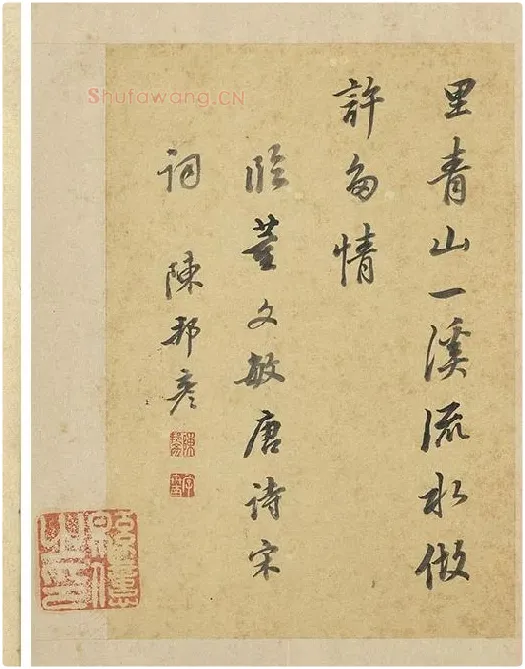 里青山一溪流水做
許多情
臨董文敏唐诗宋
词 陳邦彦
Shufawang.CN